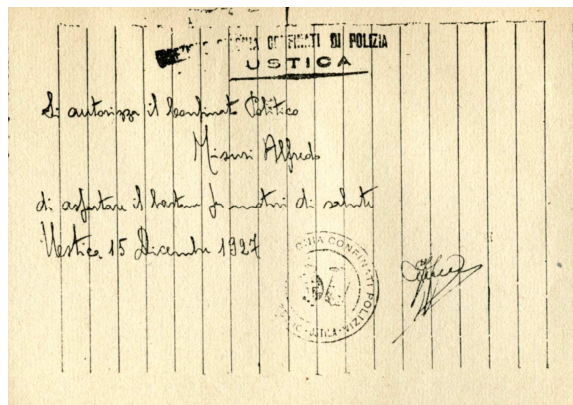 COLONIA CONFINATI DI POLIZIA
USTICA
Si autorizza il Confinato Politico
Misuri Alfredo
di asportare il bastone per motivi di salute
Ustica 15 Dicembre 1927
COLONIA CONFINATI POLIZIA
USTICA